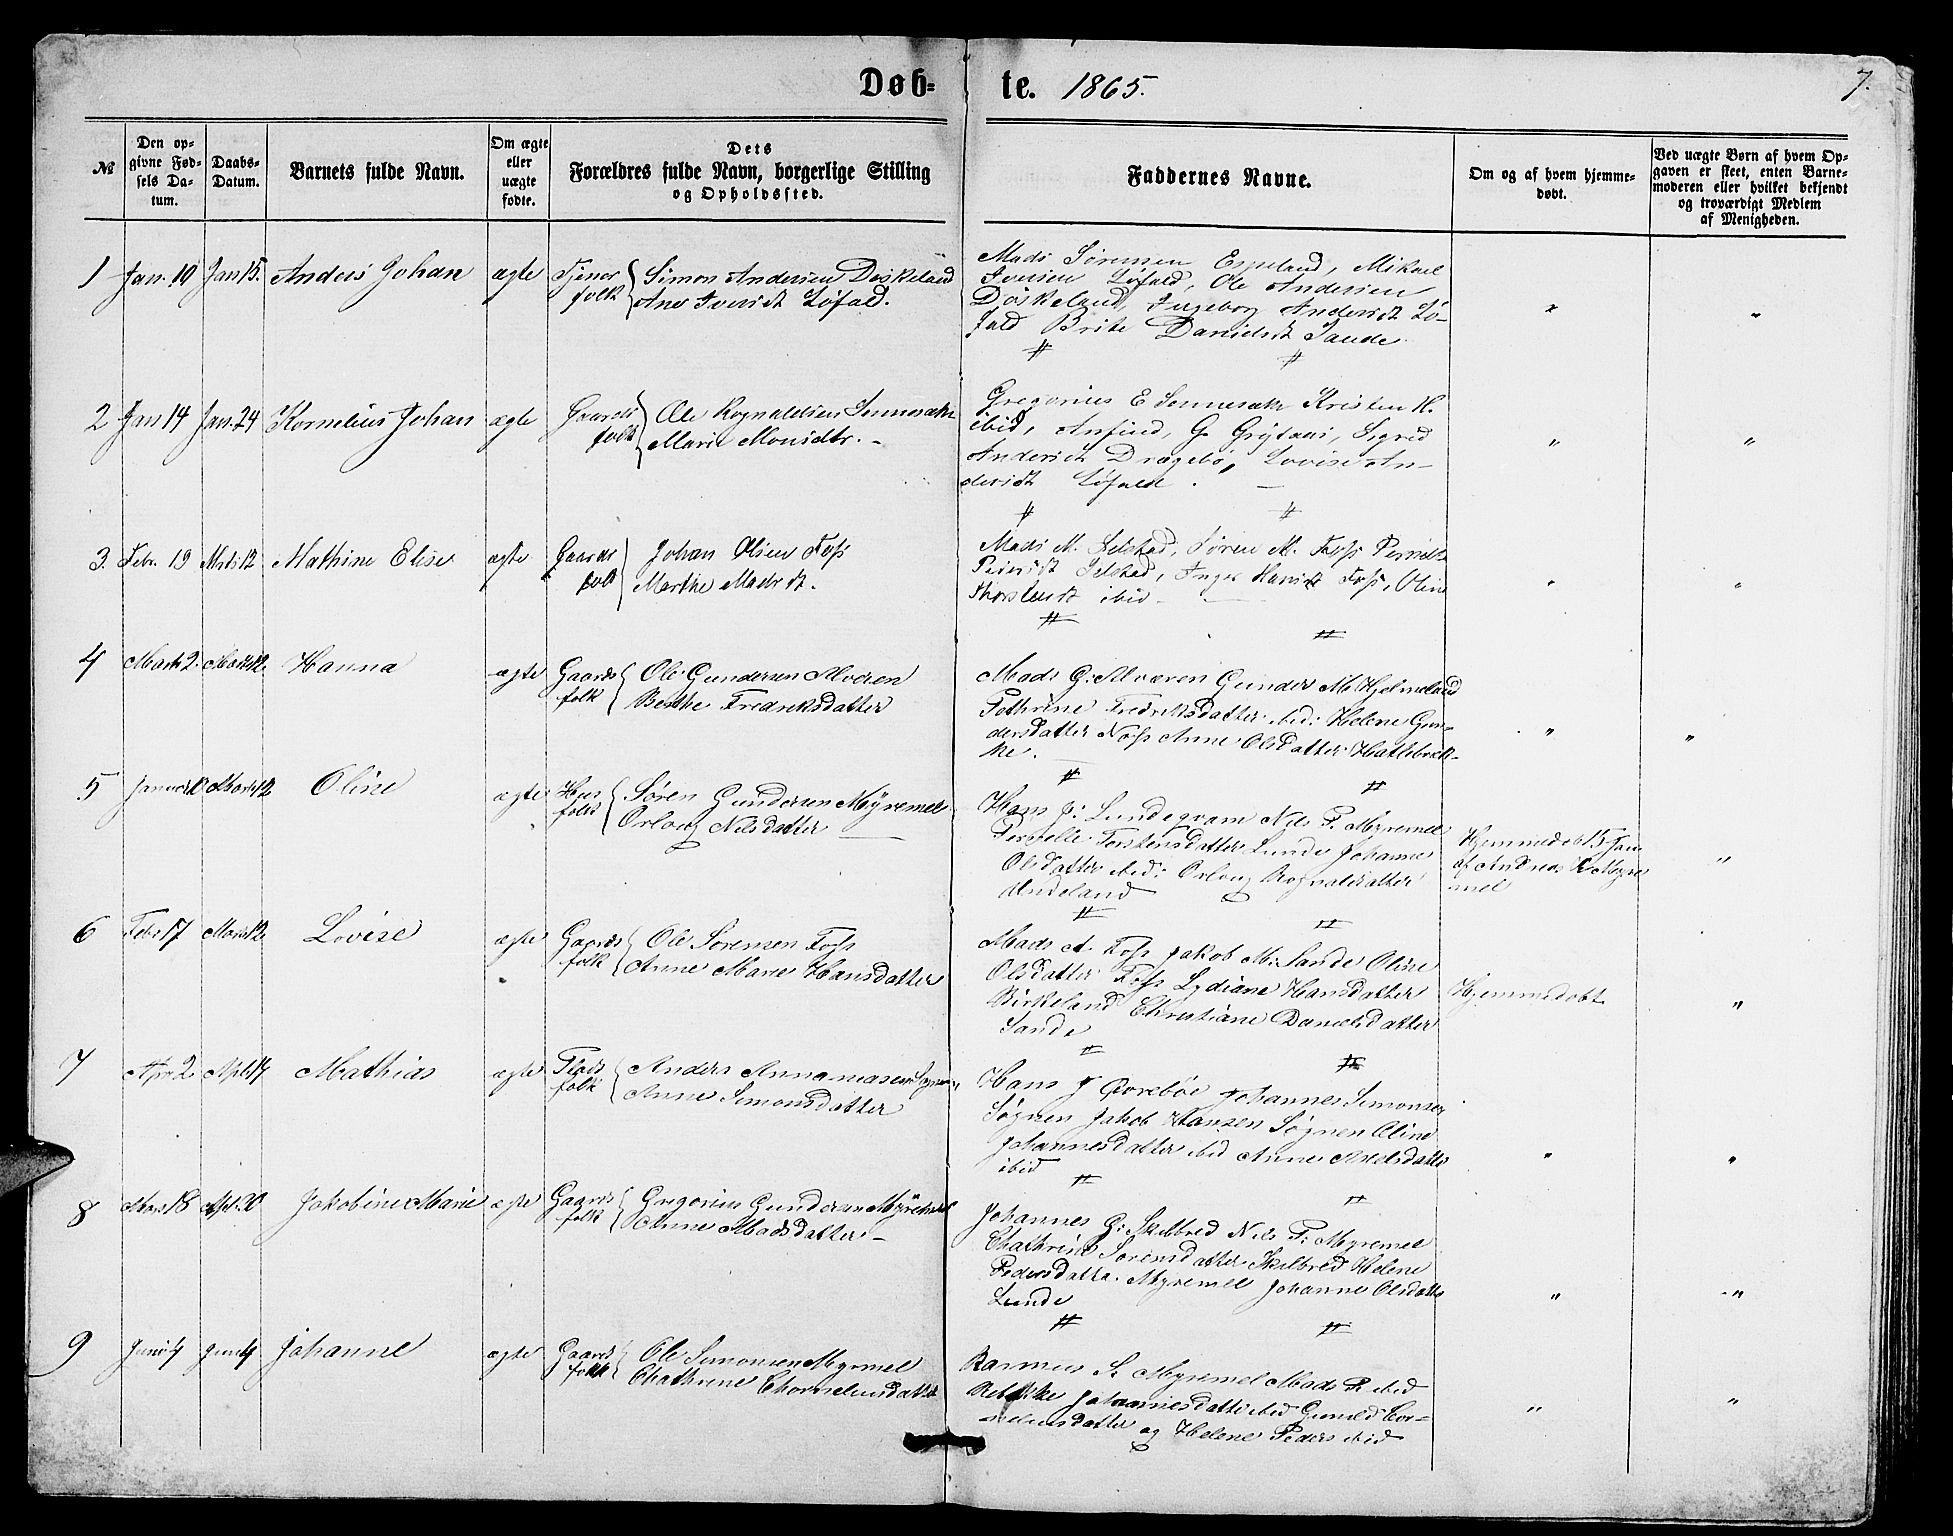 Døb- te. 1865. 7.
№
Den op-
givne Fød-
sels Da-
tum.
Daabs-
Datum.
Barnets fulde Navn.
Om ægte
eller
uægte
fødte.
Dets
Forældres fulde Navn, borgerlige Stilling
og Opholdssted.
Faddernes Navne.
Om og af hvem hjemme-
døbt.
Ved uægte Børn af hvem Op-
gaven er skeet, enten Barne-
moderen eller hvilket bekjendt
og troværdigt Medlem
af Menigheden.
1 Jan. 10 Jan 15. Anders Johan ægte
Tjener Simon Andersen Døskeland
folk Ane Iversdt Løfald.
Mads Sørensen Espeland, Mikael
Iversen Løfald, Ole Andersen
Døskeland, Ingeborg Andersdt Lø-
fald Brite Danielsdt Sande.
" "
2 Jan 14 Jan. 24 Kornelius Johan ægte
Gaards Ole Rognaldsen
folk Marie Monsdtr. -
Gregorius E Kristen H.
ibid, Anfind, G. Sigrid
Andersdt Dragebø, Lovise An-
dersdt Løfald. -
" "
3. Febr. 19 Mrts 12 Mathine Elise ægte
Gaards Johan Olsen Foss
folk Marthe Madsdt.
Mads M. Selstad, Søren M. Foss
Selstad, Inger Hansdt Foss, Oline
Thorstensdt ibid -
" "
4 Marts 2. Marts 12. Hanna ægte
Gaards Ole Gundersen Alveren
folk Berthe Fredriksdatter
Mads G: Alværen Gunder M. Hjelmeland
Fredriksdatter ibid: Helene Gun-
dersdatter Anne Olsdatter
ke.
" "
5 Januar 10 Marts 12 Oline ægte
Hus Søren Gundersen Myremel
folk Orloug Nilsdatter
Hans J: Nils P. Myremel
Pernelle Torstensdatter Lunde Johanne
Olsdatter ibid: Orloug Rognaldsdatter
Undeland
Hjemmedøbt 15 Jan
af Andreas Myre
mel
"
6 Febr 17 Marts 12. Lovise ægte
Gaards Ole Sørensen Foss
folk Anne Marie Hansdatter
Mads A. Foss Jakob M: Sande Oline
Olsdatter Foss Lydiane Hansdatter
Birkeland Christiane Danielsdatter
Sande
Hjemmedøbt
"
7 Apr 2. Apl. 14 Mathias ægte
Anders
folk Anne Simonsdatter
Hans J Johannes Simonsen
Søgnen Jakob Hansen Søgnen Oline
Johannesdatter ibid Anne Axelsdatter
ibid
" "
8 Mar. 18 Apl. 30 Jakobine Marie ægte
Gaards Gregorius Gundersen Myremel
folk Anne Madsdatter -
Johannes G: Skilbred Nils P: Myremel
Chathrine Sørensdatter Skilbred Helene
Pedersdatter Myremel Johanne Olsdatter
Lunde
" "
9 Juni 4 Juni 4 Johanne ægte
Gaards Ole Simonsen Myrmel
folk Chathrine Chorneliusdatter
Rasmus S. Myremel Mads R ibid
Johannesdatter ibid Gunild Cor-
neliusdatter og Helene Peders ibid
" "